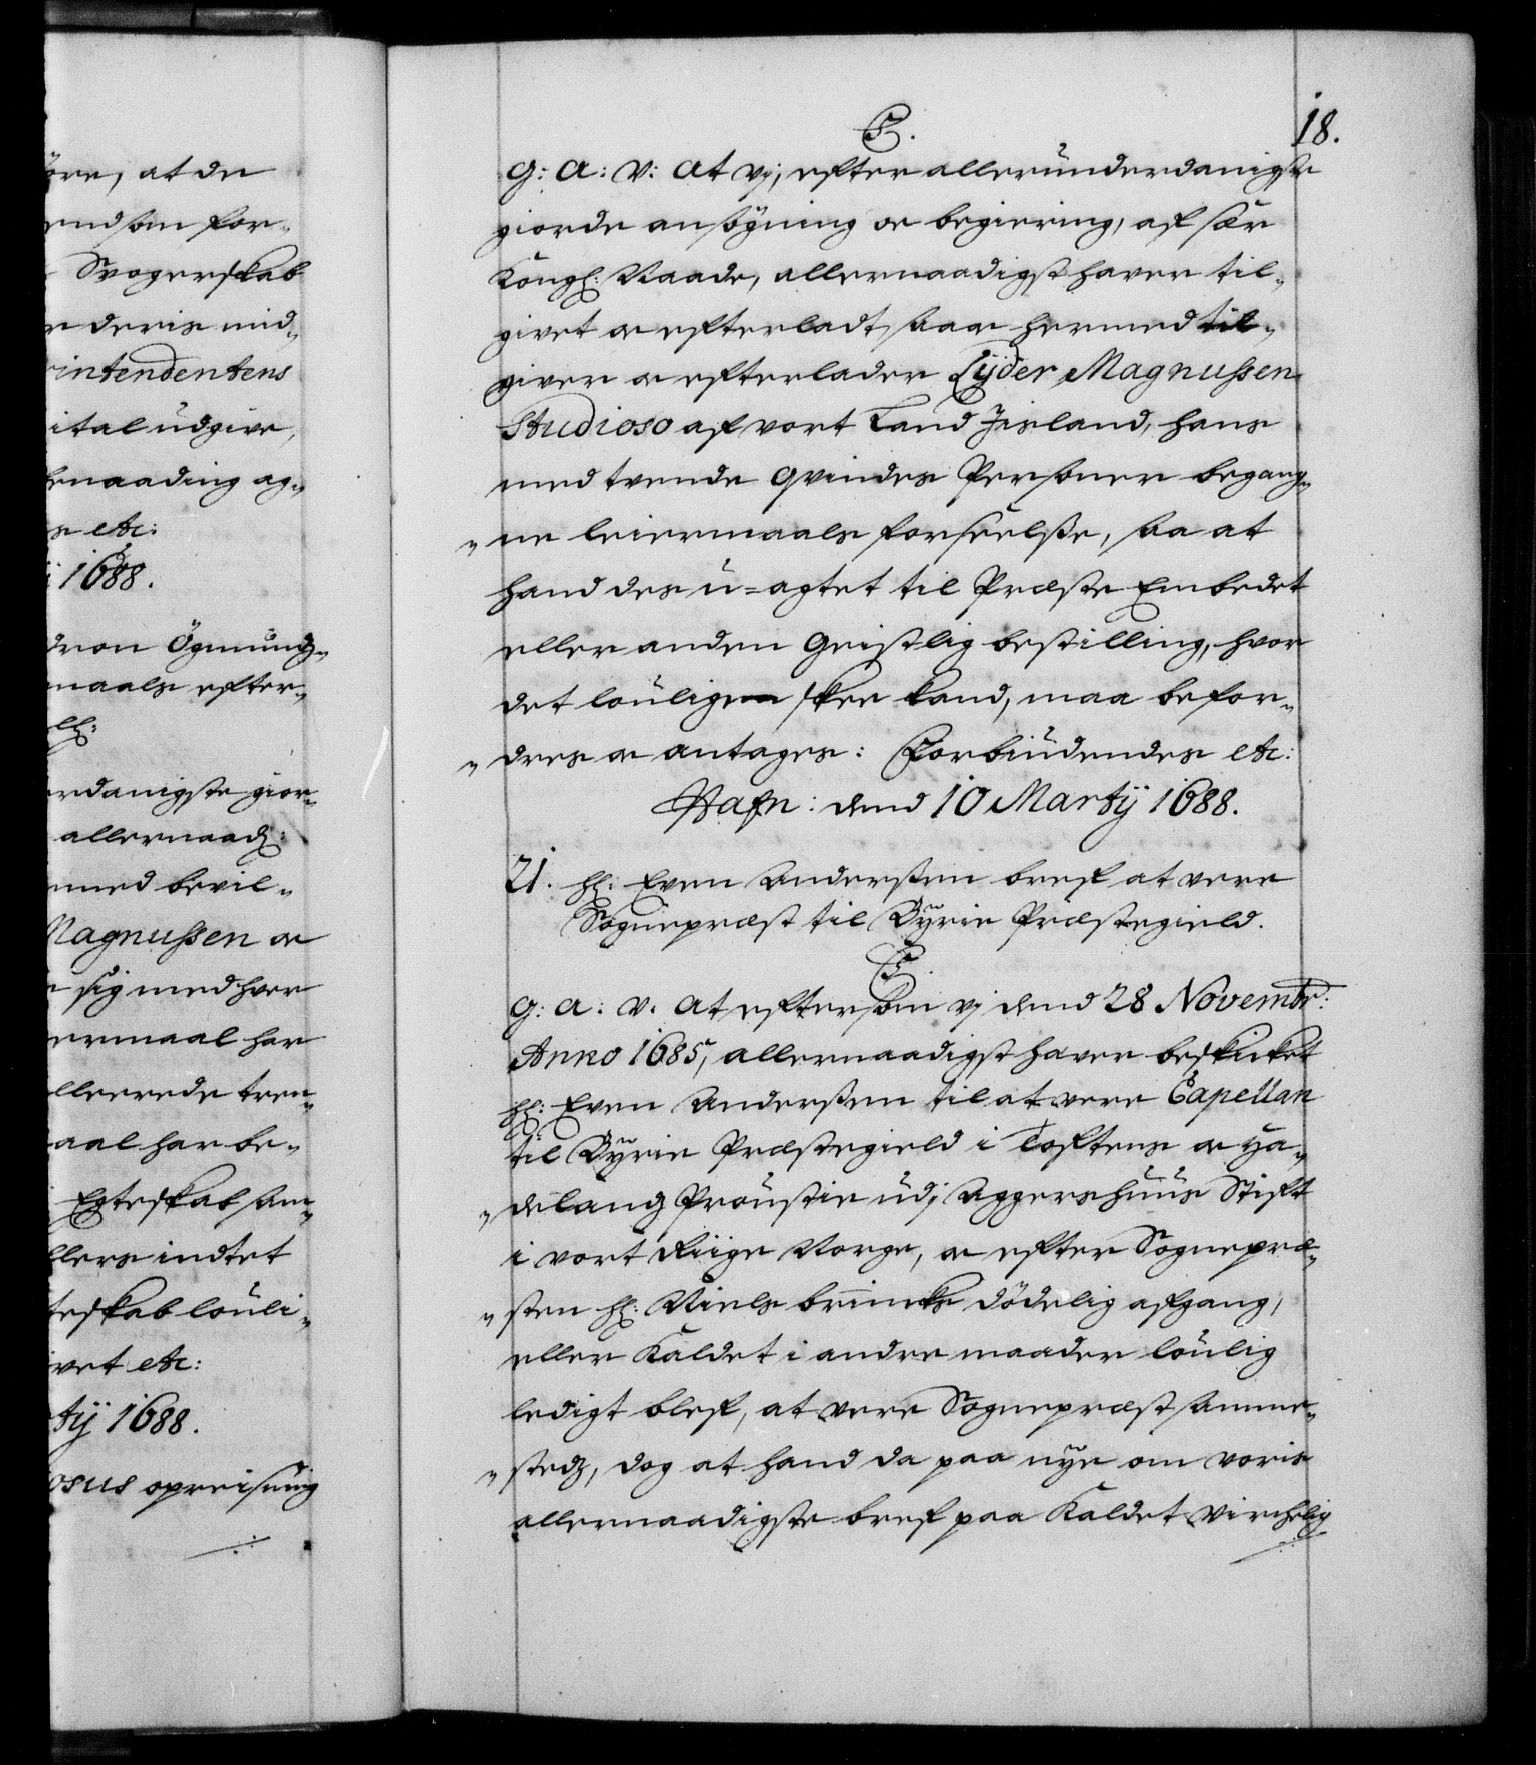 öre, at de
endsom for-
Svogerskab
r deris mid-
intendentens
ital udgive,
benaading ag-
s etc:
1688.
dron Ögmundz-
maals efter-
rdanigste gior-
allernaad:
med bevil-
Magnussen oc
sig med hver
ermaal har
llerede tven-
aal har be-
Egteskab sam-
llers indtet
teskab louli-
vet etc:
tÿ 1688.
osus opreisning
18.
C5.
G: A: V: At vj, efter allerunderdanigste
giorde ansögning oc begiering, af sær
Kongl: Naade, allernaadigst haver til-
givet oc efterladt, saa oc hermed til-
giver oc efterlader Eyder Magnussen
Studioso af vort Land Jisland, hans
med tvende Qvindes Personer begang-
ne leiermaals forseelsse, saa at
hand des u-agtet til Præste Embedet
eller anden Geistlig bestilling, hvor
det louligen skee kand, maa befor-
dres oc antages: Forbiudendes etc:
Hafn: dend 10 Martÿ 1688.
21. Hr: Even Anderssen bref at vere
Sognepræst til Öyrie Præstegield.
C5.
G: A: V: At eftersom vj dend 28 Novembr:
Anno 1685, allernaadigst haver beskicket
Hr: Even Anderssen til at vere Capellan
til Öyrie Præstegield i Toftens oc Ha-
delangz Proustie udj Aggershuus Stift
i vort Riige Norge, oc efter Sognepræ-
sten Hr: Niels brincks dödelig afgang,
eller Kaldet i andre maader loulig
ledigt blef, at vere Sognepræst samme-
stedz, dog at hand da paa nye om voris
allernaadigste bref paa Kaldet virchelig